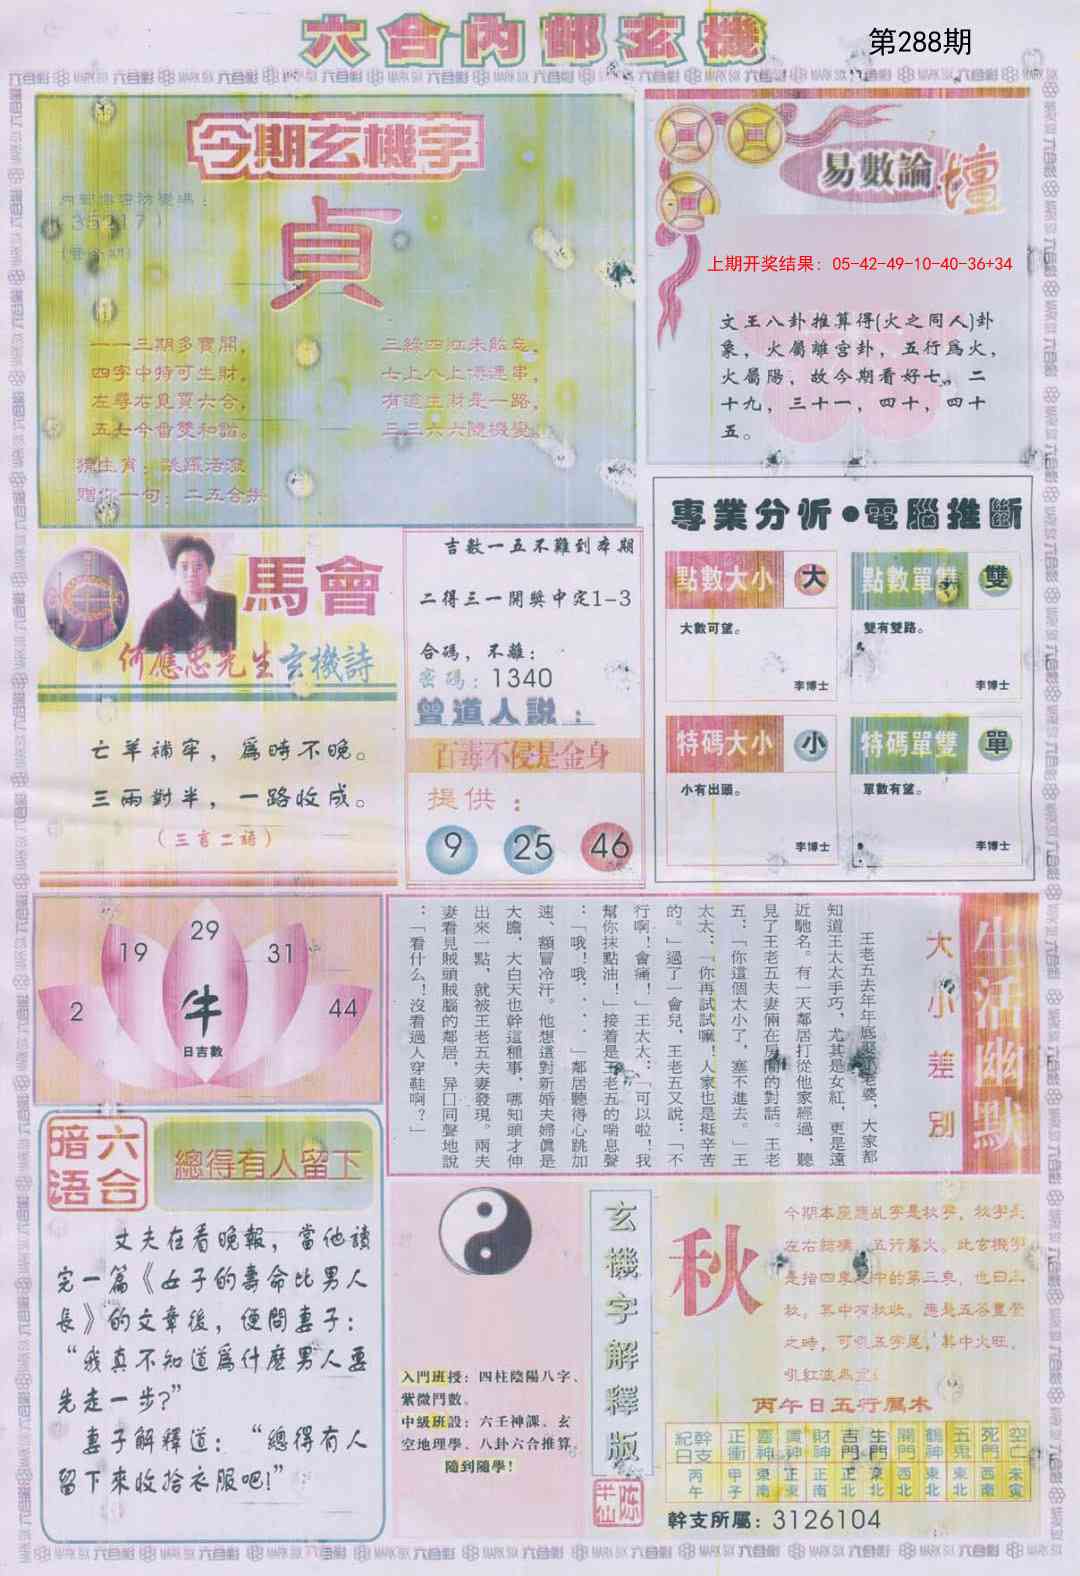 六合內部玄機
第288期
今期玄機字
貞
一一三期多寶開，
四字中特可生財，
左尋右見買六合，
三綠四
有道生財是一路，
三三六六隨機變。
猜生肖：跳躍活潑
贈你一句：二五合
易數論壇
上期开奖结果：05-42-49-10-40-36+34
文王八卦推算得(火之同人)卦
象，火屬離宮卦，五行為火，
火屬陽，故今期看好七、二
十九，三十一，四十，四十
五。
馬會
何應忠先生玄機詩
亡羊補牢，為時不晚。
三兩對半，一路收成。
(三言二語)
吉數一五不難到本期
二得三一開獎中定1-3
合碼，不離：
密碼：1340
曾道人説：
百毒不侵是金身
提供：
9 25 46
專業分析●電腦推斷
點數大小 大
大數可望。
李博士
點數單雙 雙
雙有雙路。
李博士
特碼大小 小
小有出頭。
李博士
特碼單雙 單
單數有望。
李博士
2 19 29 31 44
牛
日吉數
生活幽默
大小差別
王老五去年年底娶老婆，大家都
知道王太太手巧，尤其是女紅，更是遠
近馳名。有一天鄰居打從他家經過，聽
見了王老五夫妻倆在房間的對話。王老
五：「你這個太小了，塞不進去。」王
太太：「你再試試嘛！人家也是挺辛苦
的。」過了一會兒，王老五又說：「不
行啊！會痛！」王太太：「可以啦！我
幫你抹點油！」接着是王老五的喘息聲
：「哦！哦．．．」鄰居聽得心跳加
速、額冒冷汗。他想這對新婚夫婦真是
大膽，大白天也幹這種事，哪知頭才伸
出來一點，就被王老五夫妻發現。兩夫
妻看見賊頭賊腦的鄰居，异口同聲地說
：「看什么！沒看過人穿鞋啊？」
六合暗语
總得有人留下
丈夫在看晚報，當他讀
完一篇《女子的壽命比男人
長》的文章後，便問妻子：
“我真不知道為什麼男人要
先走一步？”
妻子解釋道：“總得有人
留下來收拾衣服吧！”
入門班授：四柱陰陽八字、
紫微鬥數。
中級班設：六壬神課、玄
空地理學、八卦六合推算，
隨到隨學！
玄機字解釋版
陈半仙
秋
今期本座應乩字是秋字，秋字是
左右結構，五行屬火。此玄機字
是指四季之中的第三季，也曰三
秋。其中有秋收。應是五谷豐登
之時，可引五字尾，其中火旺。
丙午日五行屬木
幹支紀日 正衝 喜神 貴神 財神 吉門 生門 開門 鶴神 五鬼 死門 空亡
丙午 甲子 東南 正東 正南 正北 東北 西北 東北 東北 西南 未寅
幹支所屬：3126104